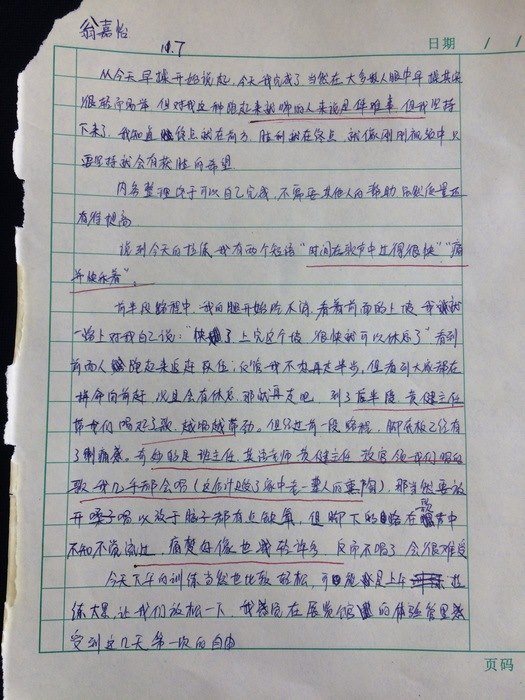 翁嘉怡
11.7
日期 / /
从今天早操开始说起,今天我完成了当然在大多数人眼中早操其实
很轻而易举 但对我这种跑起来就喘的人来说是件难事 但我坚持
下来了,我知道终点就在前方,胜利就在终点 就像刚刚视频中只
要坚持就会有获胜的希望
内务整理终于可以自己完成,不需要其他人的帮助 虽然质量还
有待提高
说到今天的拉练,我有两个短语"时间在歌声中过得很快""痛
并快乐着"。
前半段路程中,我的腿开始吃不消,看着前面的上坡 我就
一路上对我自己说:"快了 上完这个坡 很快就可以休息了"看到
前面人跑起来追赶队伍;反馈我不想再走半步,但看到大家都在
拼命向前赶 以及会有休息 那就再走吧 到了后半段 黄健主任
带我们唱起了歌 越唱越带劲。但经过前一段路程,脚底板已经有
了刺痛感。奇妙的是班主任 英语老师 黄健主任 教官 他们唱的
歌 我几乎都会唱(这估计受了家中老一辈人的熏陶),那当然要放
开嗓子唱 以致于脑子都有点缺氧,但脚下的路在歌声中
不知不觉流过,痛楚好像也减轻许多 反而不唱了 会很难受
今天下午的训练当然也比较轻松,可能是上午拉
练太累,让我们放松一下,我感觉在展览馆的体验管里感
受到这几天第一次的自由
页码